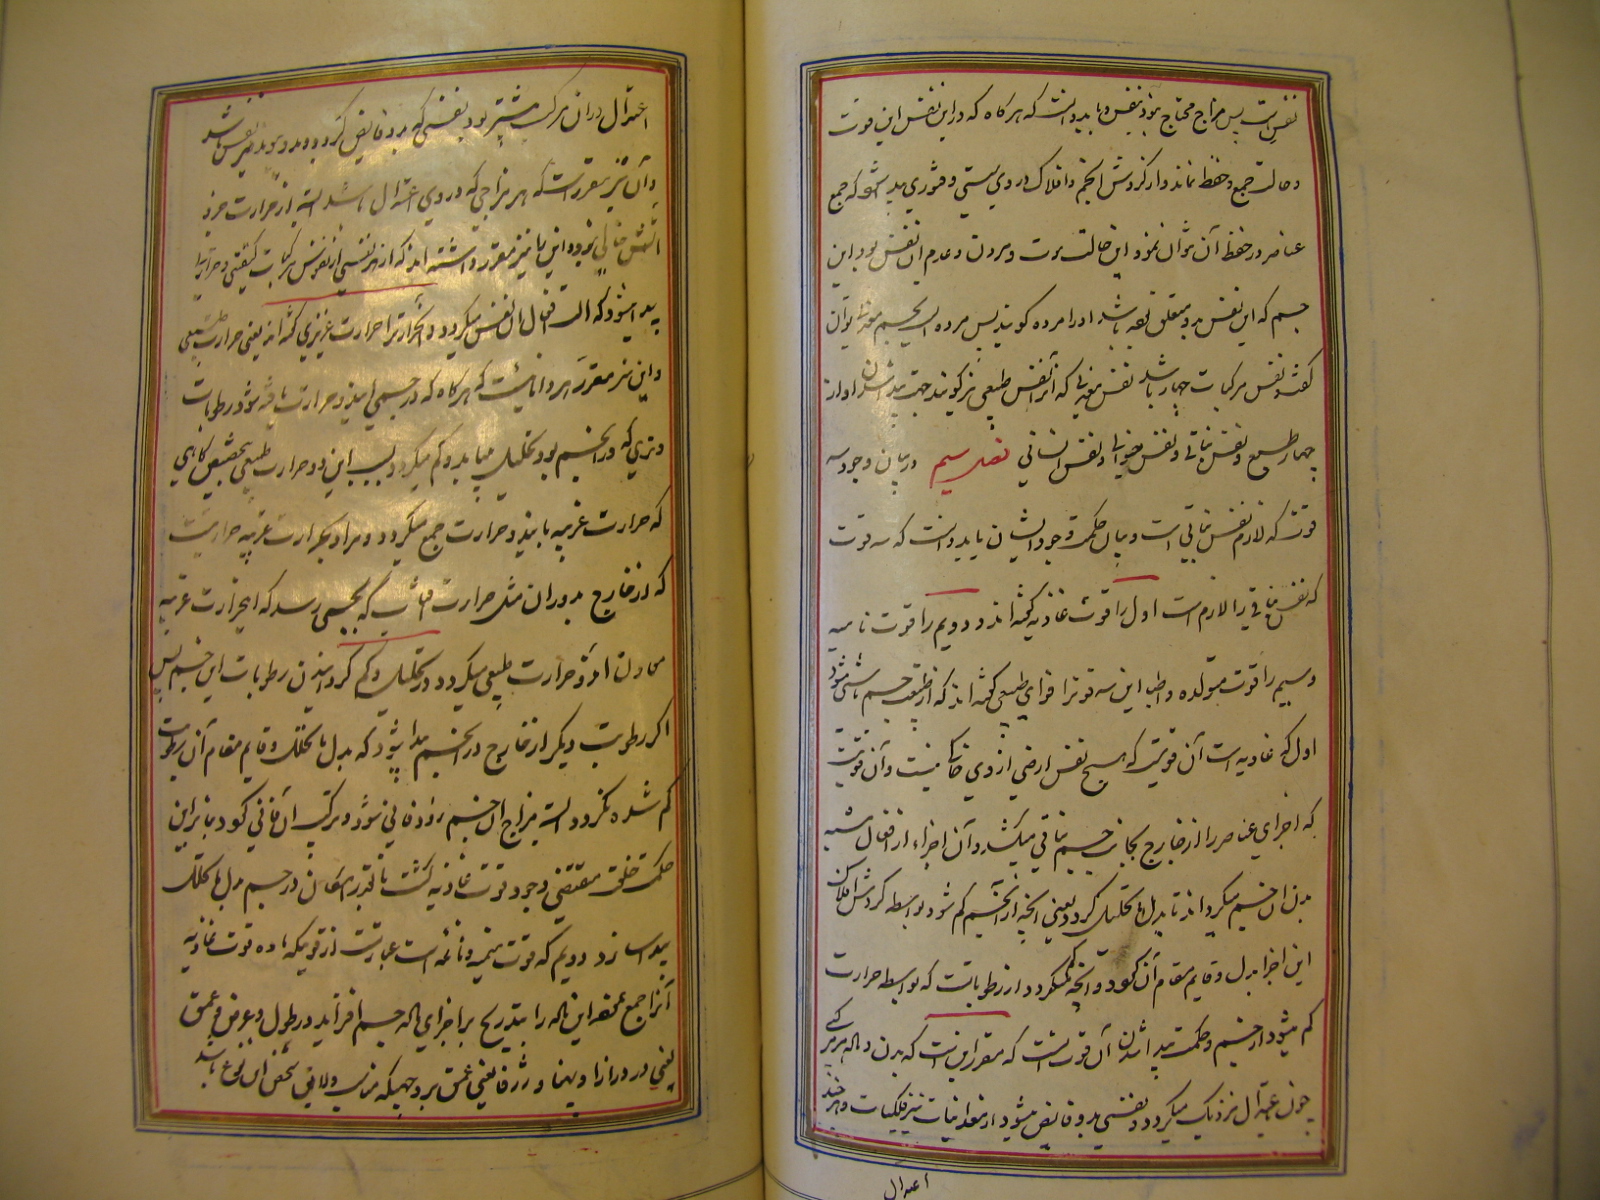 نفس است پس مزاج محتاج بود بنفس و بباید دانست که هر کاه که در این نفس این قوت
و حالت جمع و حفظ نماند و از کردش انجم و افلاک در وی سستی و فتوری پدید شود که جمع
عناصر و حفظ آن نتواند نمود این حالت موت و مردن و عدم آن نفس بود و این
جسم که این نفس بدو متعلق بوده باشد او را مرده کویند پس مرده آن جسم بتوان
کفت و نفس مرکبات چهار باشد نفس که آنرا نفس طبیعی نیز کویند جهت پیدا شدن او از
چهار طبع و نفس نباتی و نفس حیوانی و نفس انسانی فصل سیم در بیان وجود سه
قوت که لازم نفس نباتی است و بیان حکمت وجود ایشان باید دانست که سه قوت
که نفس نباتی را لازم است اول را قوت غاذیه کفته اند و دویم را قوت نامیه
و سیم را قوت مولده و اطبا این سه قوت را قوای طبیعی کفته اند که از طبیعت جسم ناشی شود
اول که غاذیه است آن قوتیست که هیچ نفس ارضی از وی خالی نیست و آن قوتیست
که اجزای عناصر را از خارج بجانب جسم نباتی میکشد و آن اجزاء را از افعال شبیه
بدن آن جسم میکرداند تا بدل ما تحلیل کردد یعنی آنچه از آن جسم کم شود بواسطه کردش افلاک
این اجزا بدل و قایم مقام آن کردد و آنچه کم میکردد از رطوباتست که بواسطه حرارت
کم میشود از جسم و حکمت پیدا شدن آن قوت آنست که مقرر اینست که بدن و ماله هر مرکبی
چون باعتدال نزدیک میکردد نفسی بدو فایض میشود از معدنیات نیز فلکیات و هر چند
اعتدال
اعتدال در آن مرکب بیشتر بود نفسی که بدو فایض کردد و بدو پیوندد شریفتر باشد
و آن نیز مقرر است که هر مزاجی که در وی اعتدال باشد البته از حرارت جزو
آتش خالی نبود و این را نیز مقرر داشته اند که از هر نفسی از نفوس مرکبات کیفیتی و حرارتی
پیدا شود که آلت افعال آن نفس میکردد و آن حرارت را حرارت غریزی کفته اند یعنی حرارت طبیعی
و این نیز مقرر هر داناییست که هر کاه که در جسمی این دو حرارت یافته شود رطوبات
و تری که در آن جسم بود تحلیل مییابد و کم میکردد بسبب این دو حرارت طبیعی بتخصیص کاهی
که حرارت غریبه با این دو حرارت جمع میکردد و مراد بحرارت غریبه حرارتیست
که از خارج بدو رسد مثل حرارت آفتاب که بجسمی رسد که این حرارت غریبه
معاون آن دو حرارت طبیعی میکردد در تحلیل و کم کردانیدن رطوبات این جسم پس
اکر رطوبت دیکر از خارج در آن جسم پیدا نشود که بدل ما تحلل و قایم مقام آن رطوبت
کم شده نکردد البته مزاج آن جسم زود فانی شود و ترکیب آن فانی کردد بنا براین
حکمت خلقت مقتضی وجود قوت غاذیه کشت تا بقدر امکان در جسم بدل ما تحلل
پیدا سازد دویم که قوت منمیه و نامیه است عبارتست از قوتی که ماده قوت غاذیه
آنرا جمع نموده این ماله را بتدریج بر اجزای ماله جسم افزاید در طول و عرض و عمق
یعنی در درازا و پهنا و ژرفا یعنی عمق بر وجهی که مناسب و لایق شخص آن نوع باشد